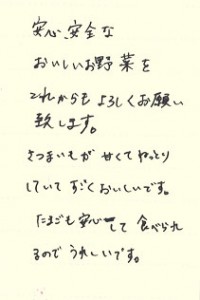 安心、安全な
おいしいお野菜を
これからもよろしくお願い
致します。
さつまいもが甘くてねっとり
していてすごくおいしいです。
たまごも安心して食べられ
るのでうれしいです。